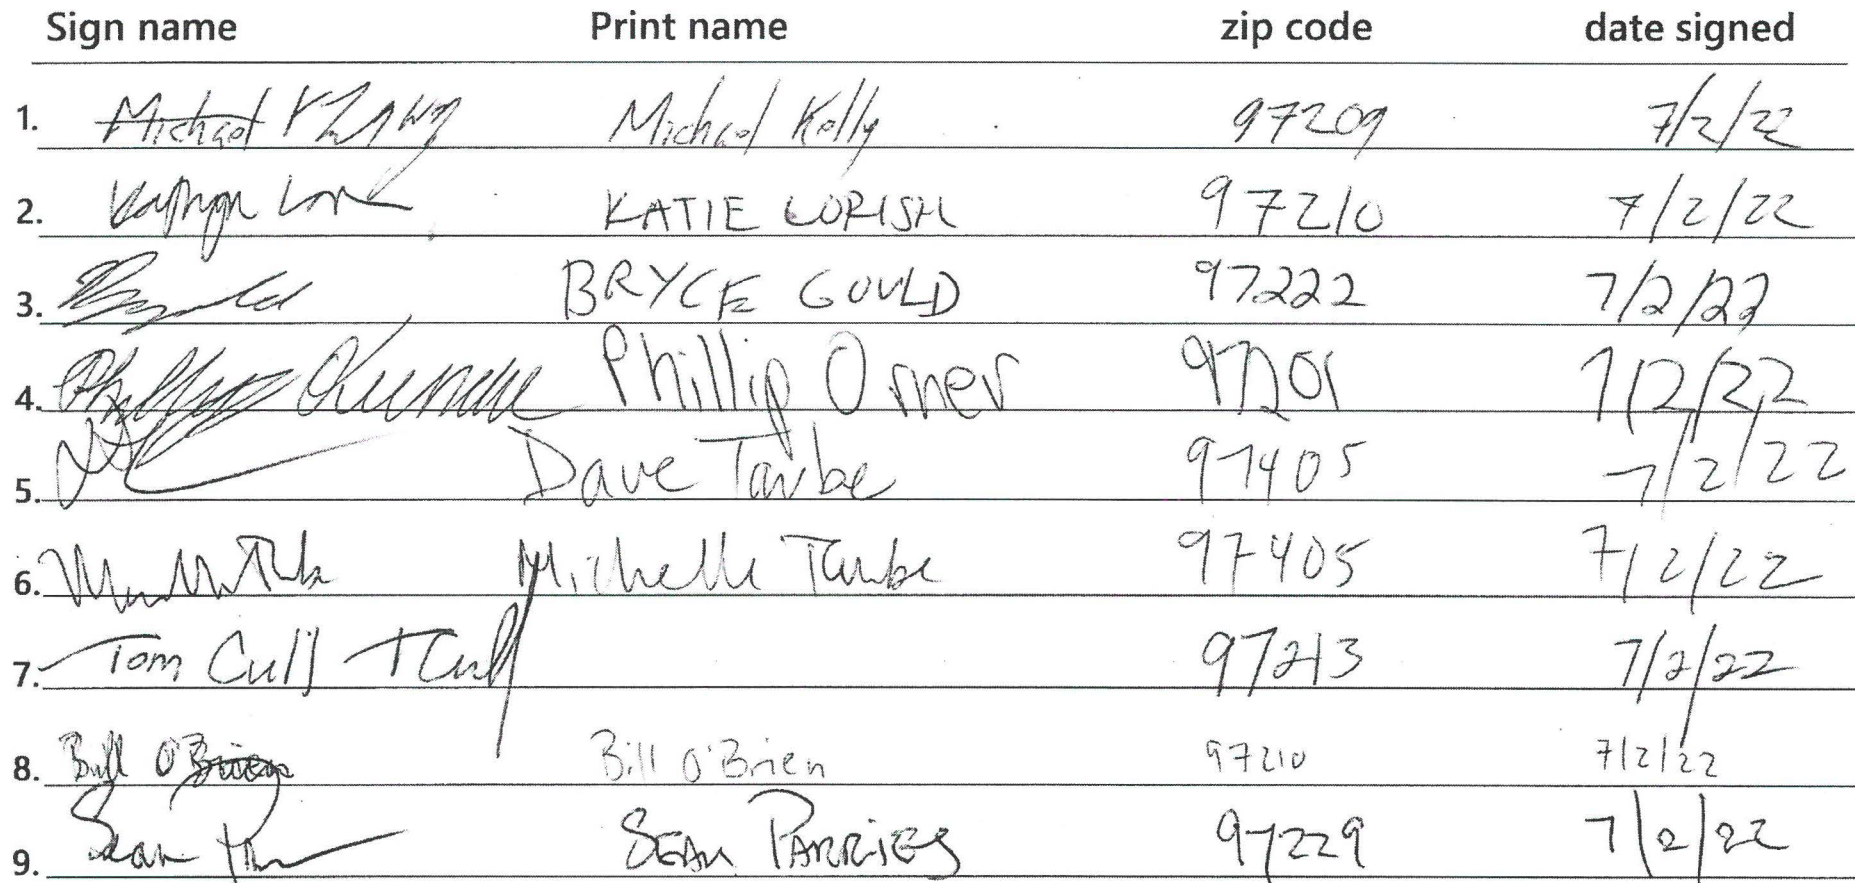 Sign name Print name zip code date signed
1. Michael Michael Kelly 97209 7/2/22
2. KATIE LORISH 97210 7/2/22
3. BRYCE GOULD 97222 7/2/22
4. Phillip Orner 97201 7/2/22
5. Dave Taube 97405 7/2/22
6. Michelle Taube 97405 7/2/22
7. Tom Cull T Cull 97213 7/2/22
8. Bill O'Brien Bill O'Brien 97210 7/2/22
9. Sean SEAN PARRIES 97229 7/2/22